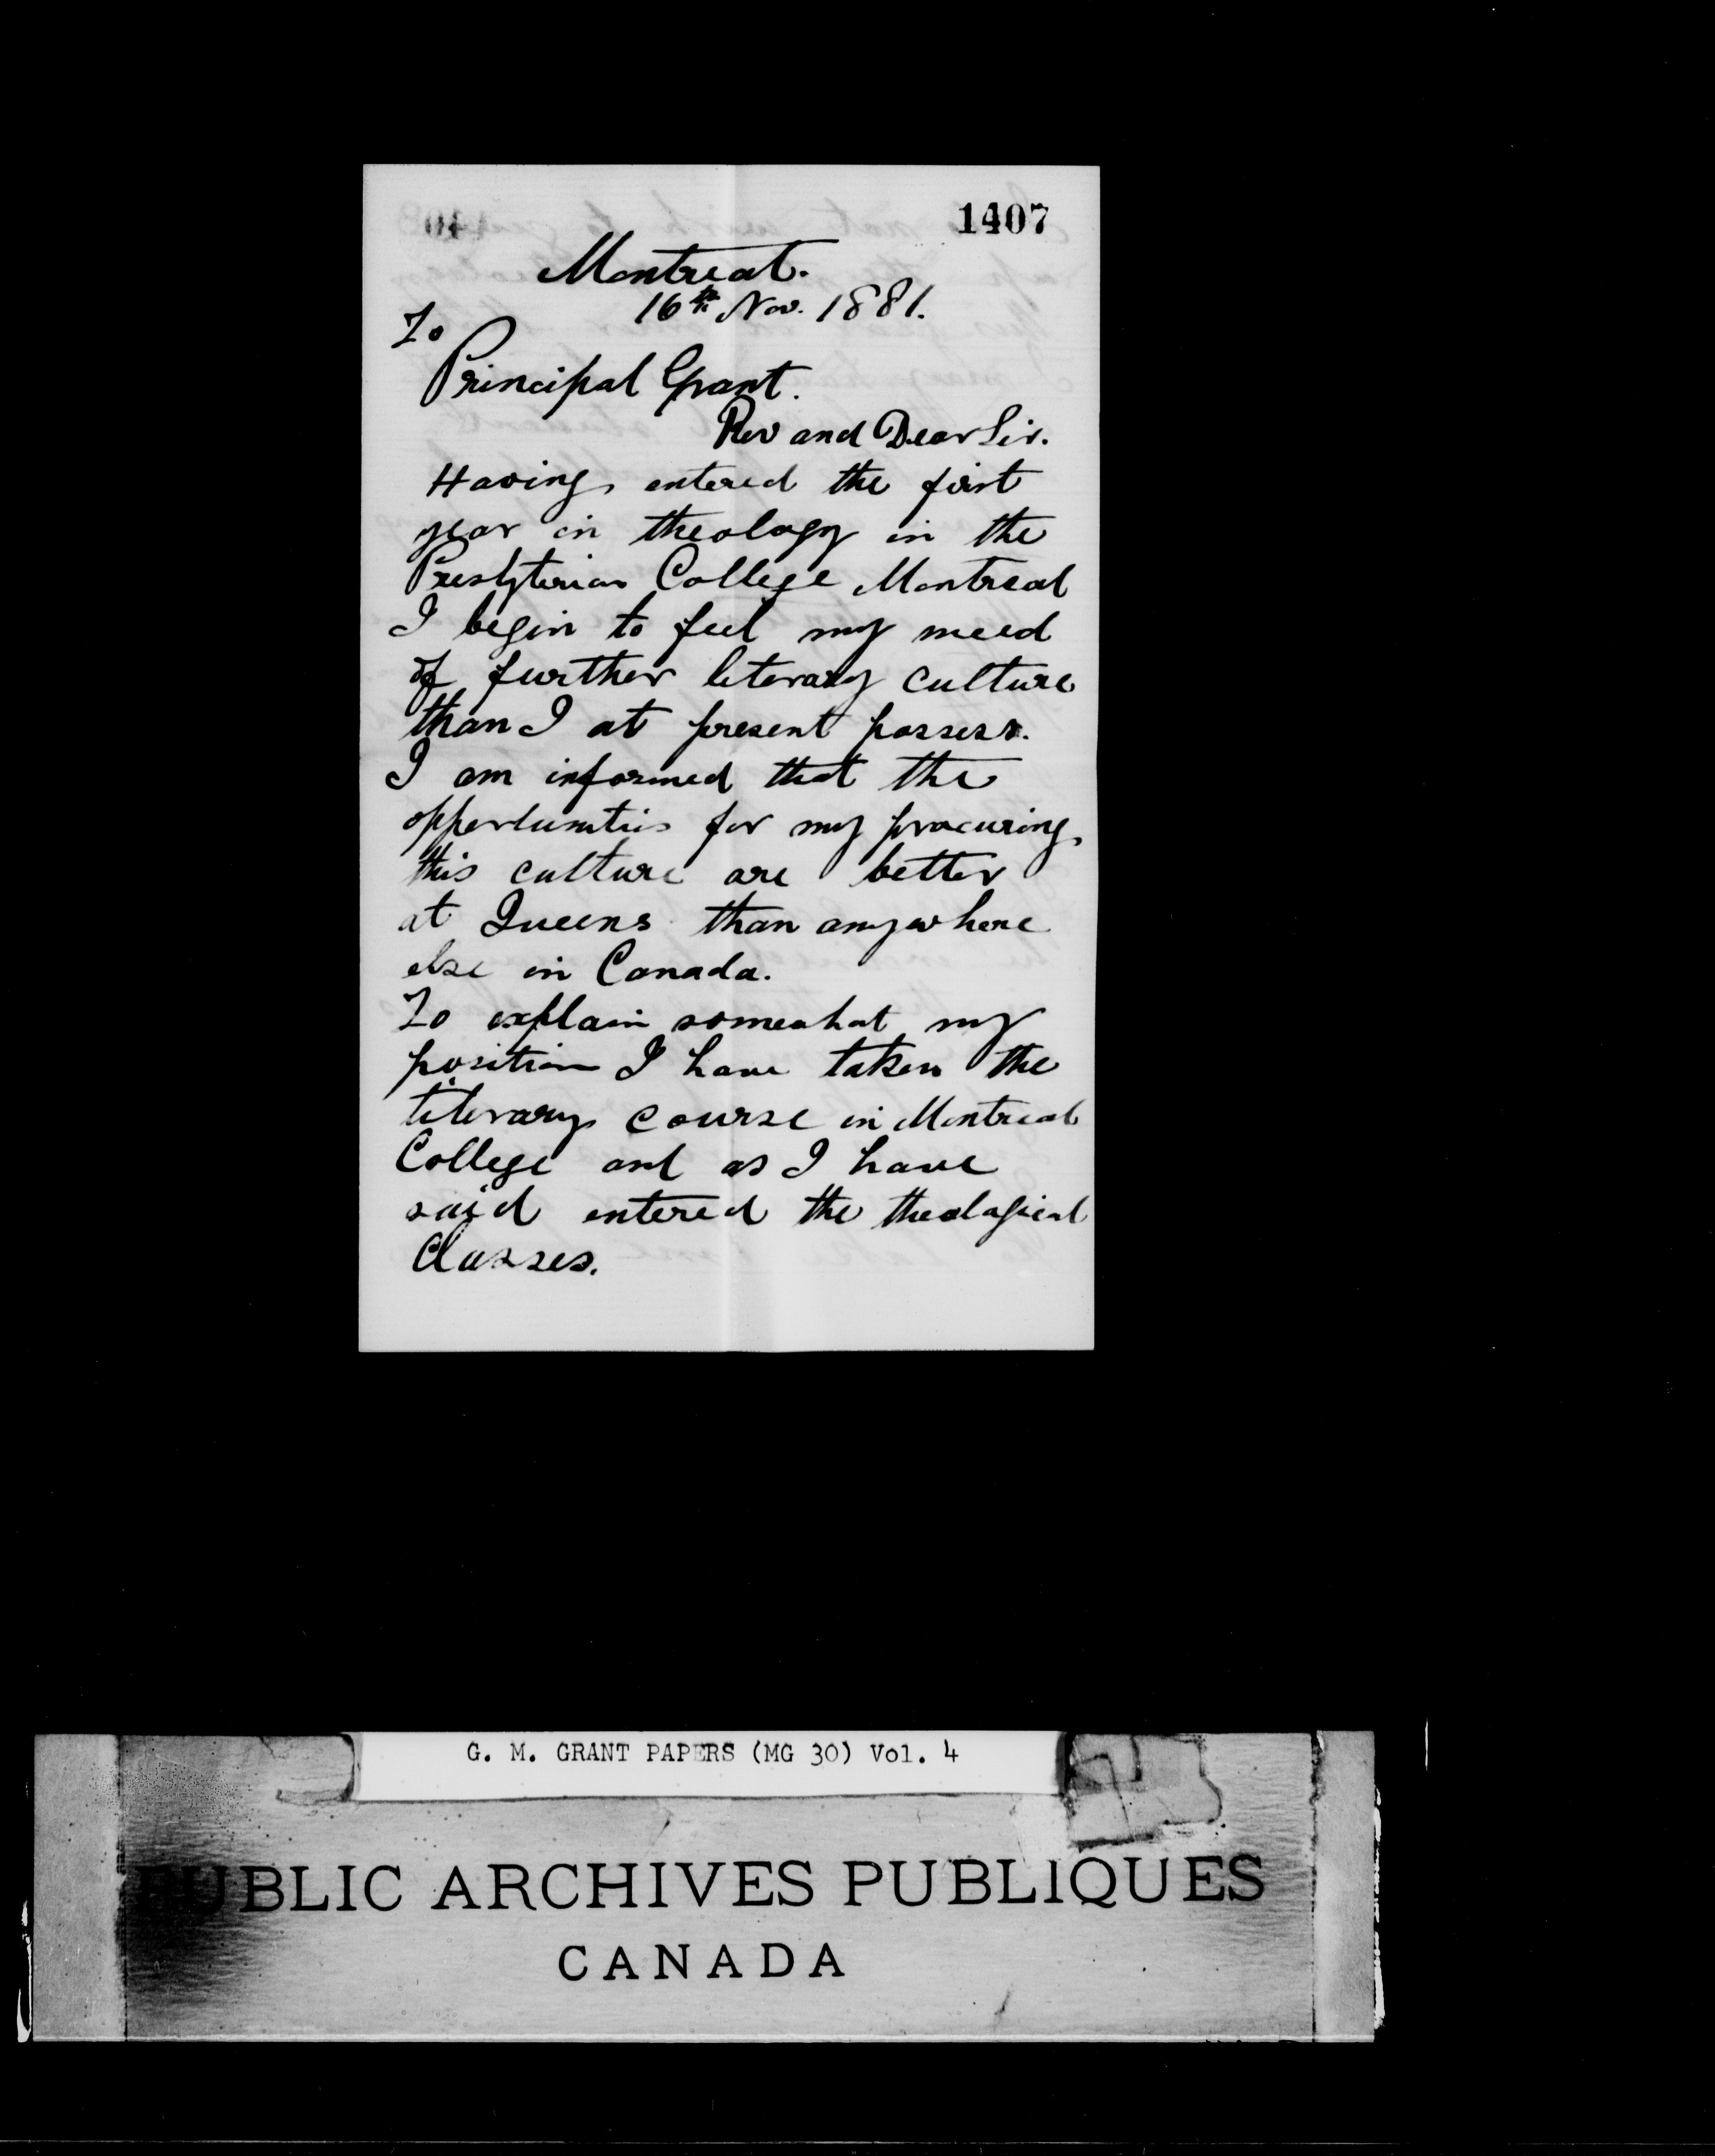 1407
Montreal.
16th Nov. 1881.
To
Principal Grant.
Rev and Dear Sir.
Having entered the first
year in theology in the
Presbyterian College Montreal
I begin to feel my need
of further literary culture
than I at present possess.
I am informed that the
opportunities for my procuring
this culture are better
at Queens than anywhere
else in Canada.
To explain somewhat my
position I have taken the
literary course in Montreal
College and as I have
said entered the theological
Classes.
G. M. GRANT PAPERS (MG 30) Vol. 4
PUBLIC ARCHIVES PUBLIQUES
CANADA